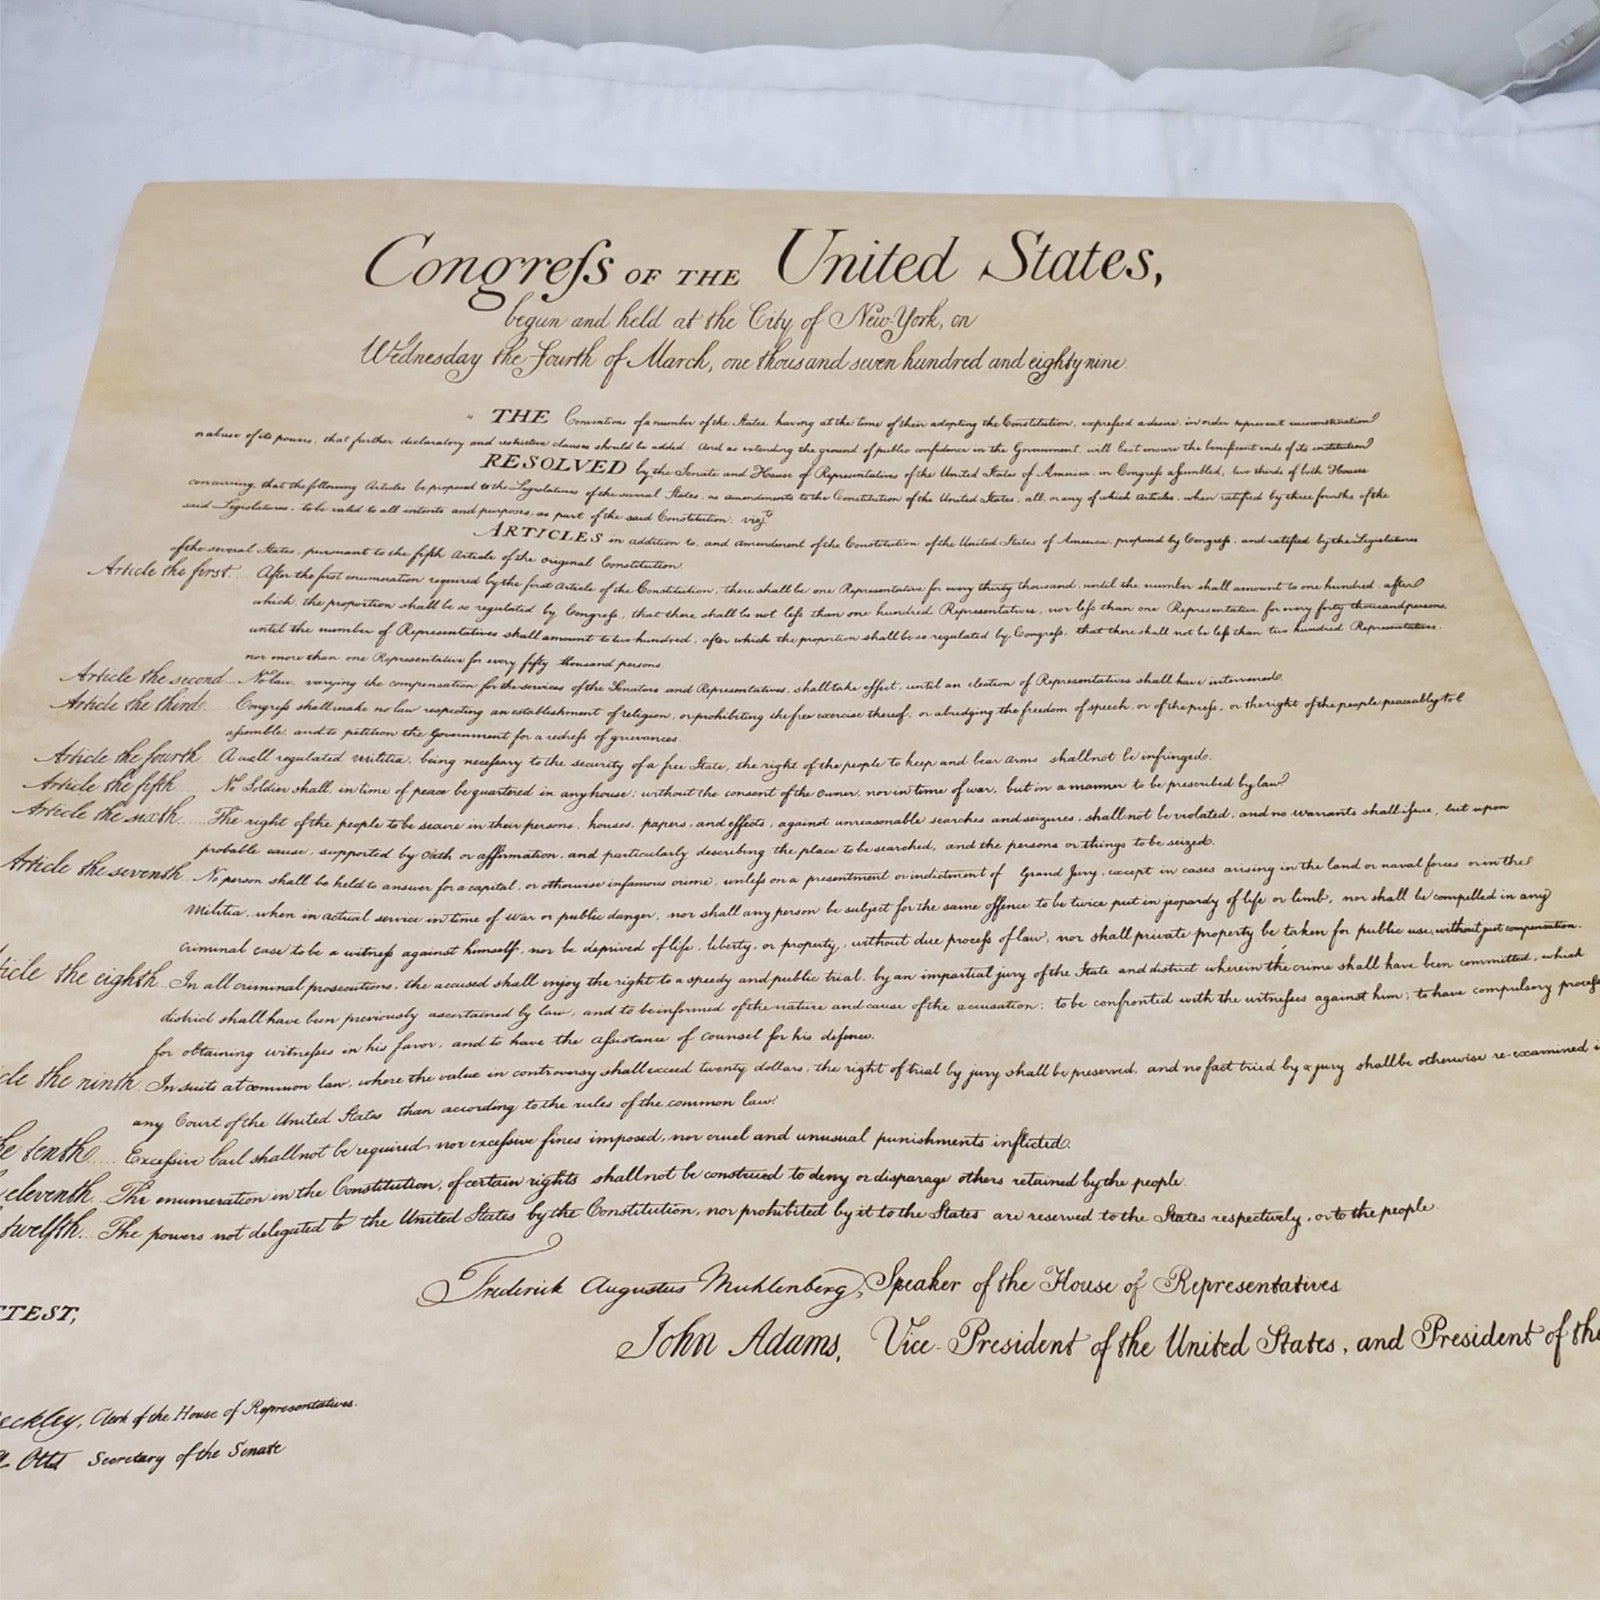 Congreſs OF THE United States,
begun and held at the City of New-York, on
Wednesday the fourth of March, one thousand seven hundred and eighty nine.
THE Conventions of a number of the States, having at the time of their adopting the Constitution, expreſsed a desire, in order to prevent misconstruction
or abuse of its powers, that further declaratory and restrictive clauses should be added: And as extending the ground of public confidence in the Government, will best ensure the beneficent ends of its institution
RESOLVED by the Senate and House of Representatives of the United States of America, in Congreſs aſsembled, two thirds of both Houses
concurring, that the following Articles be proposed to the Legislatures of the several States, as amendments to the Constitution of the United States, all, or any of which Articles, when ratified by three fourths of the
said Legislatures, to be valid to all intents and purposes, as part of the said Constitution; vizt
ARTICLES in addition to, and Amendment of the Constitution of the United States of America, proposed by Congreſs, and ratified by the Legislatures
of the several States, pursuant to the fifth Article of the original Constitution.
Article the first... After the first enumeration required by the first Article of the Constitution, there shall be one Representative for every thirty thousand, until the number shall amount to one hundred, after
which, the proportion shall be so regulated by Congreſs, that there shall be not leſs than one hundred Representatives, nor leſs than one Representative for every forty thousand persons,
until the number of Representatives shall amount to two hundred, after which the proportion shall be so regulated by Congreſs, that there shall not be leſs than two hundred Representatives,
nor more than one Representative for every fifty thousand persons.
Article the second... No law, varying the compensation for the services of the Senators and Representatives, shall take effect, until an election of Representatives shall have intervened.
Article the third... Congreſs shall make no law respecting an establishment of religion, or prohibiting the free exercise thereof; or abridging the freedom of speech, or of the preſs, or the right of the people peaceably to
aſsemble, and to petition the Government for a redreſs of grievances.
Article the fourth. A well regulated Militia, being neceſsary to the security of a free State, the right of the people to keep and bear Arms shall not be infringed.
Article the fifth No Soldier shall, in time of peace be quartered in any house, without the consent of the Owner, nor in time of war, but in a manner to be prescribed by law
Article the sixth... The right of the people to be secure in their persons, houses, papers, and effects, against unreasonable searches and seizures, shall not be violated, and no Warrants shall iſsue, but upon
probable cause, supported by Oath or affirmation, and particularly describing the place to be searched, and the persons or things to be seized.
Article the seventh.. No person shall be held to answer for a capital, or otherwise infamous crime, unleſs on a presentment or indictment of Grand Jury, except in cases arising in the land or naval forces or in the
Militia, when in actual service in time of War or public danger, nor shall any person be subject for the same offence to be twice put in jeopardy of life or limb, nor shall be compelled in any
criminal case to be a witneſs against himself, nor be deprived of life, liberty, or property, without due proceſs of law, nor shall private property be taken for public use, without just compensation.
icle the eighth.. In all criminal prosecutions, the accused shall enjoy the right to a speedy and public trial, by an impartial jury of the State and district wherein the crime shall have been committed, which
district shall have been previously ascertained by law, and to be informed of the nature and cause of the accusation; to be confronted with the witneſses against him; to have compulsory proceſs
for obtaining witneſses in his favor, and to have the aſsistance of counsel for his defence.
cle the ninth. In suits at common law, where the value in controversy shall exceed twenty dollars, the right of trial by jury shall be preserved, and no fact tried by a jury shall be otherwise re-examined
any Court of the United States than according to the rules of the common law.
he tenth... Exceſsive bail shall not be required nor exceſsive fines imposed, nor cruel and unusual punishments inflicted.
eleventh. The enumeration in the Constitution, of certain rights shall not be construed to deny or disparage others retained by the people.
twelfth. The powers not delegated to the United States by the Constitution, nor prohibited by it to the States are reserved to the States respectively, or to the people
Frederick Augustus Muhlenberg, Speaker of the House of Representatives
TTEST,
John Adams, Vice-President of the United States, and President of the
eckley, Clerk of the House of Representatives.
Otis Secretary of the Senate